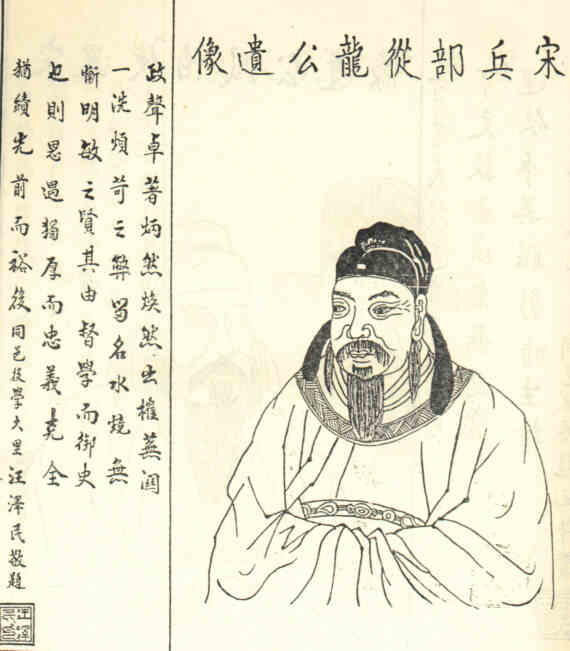 宋兵部從龍公遺像
政聲卓著炳然煥然出榷蕪關
一洗煩苛之弊留名水燒無
慚明敏之賢其由督學而御史
也則恩遇獨厚而忠義克全
猶績先前而裕後同邑後學大里汪澤民敬題